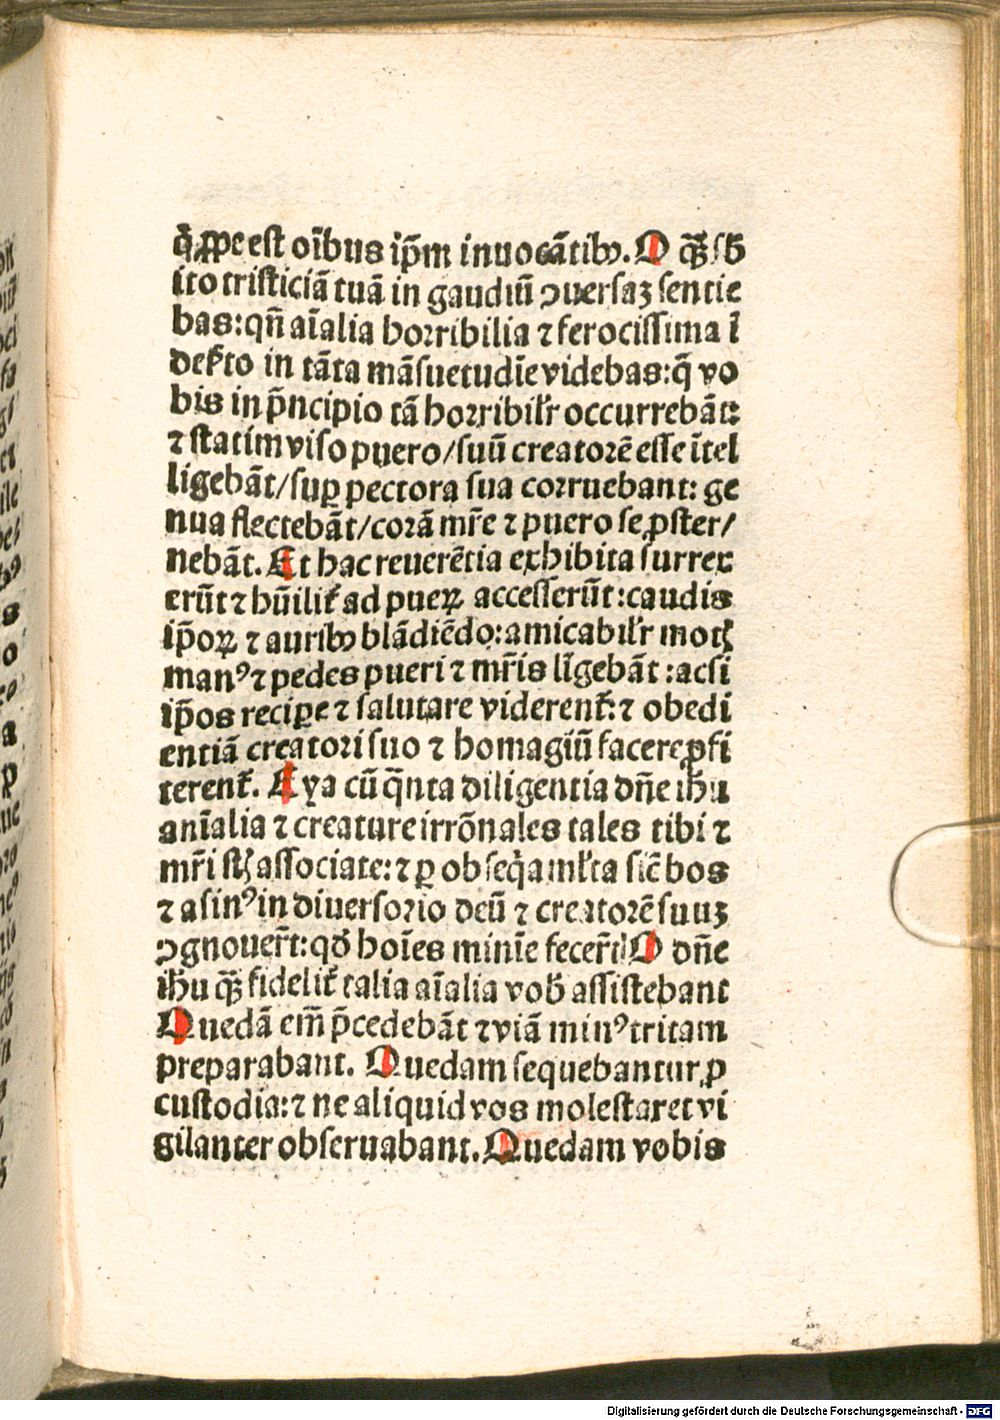 q̇ ꝓpe est oībus ip̄m inuocātibꝫ. O q̄ꝫ sb̄
ito tristiciā tuā in gaudiū ↄuersaꝫ sentie
bas: qn̄ aīalia horribilia ⁊ ferocissima ī
deẜto in tāta māsuetudīe videbas: q̄ vo
bis in p̄ncipio tā horribilr̄ occurrebāt:
⁊ statim viso puero/ suū creatorē esse ītel
ligebāt/ suꝑ pectora sua corruebant: ge
nua flectebāt/ corā mr̄e ⁊ puero se ꝓster/
nebāt. Et hac reuerētia exhibita surrex
erūt ⁊ hūilit̄ ad pueꝝ accesserūt: caudis
ip̄oꝝ ⁊ auribꝫ blādiēdo: amicabilr̄ motꝭ
manꝰ ⁊ pedes pueri ⁊ mr̄is līgebāt: acsi
ip̄os reciꝑe ⁊ salutare viderent̄: ⁊ obedi
entiā creatori suo ⁊ homagiū facere ꝓfi
terent̄. Eya cū q̄nta diligentia dn̄e ih̄u
anīalia ⁊ creature irrōnales tales tibi ⁊
mr̄i st̄ associate: ⁊ ꝑ obseq̇a ml̄ta sic̄ bos
⁊ asinꝰ in diuersorio deū ⁊ creatorē suuꝫ
ↄgnouer̄t: qd̄ hoīes minīe fecer̄t O dn̄e
ih̄u q̄ꝫ fidelit̄ talia aīalia vob̄ assistebant
Quedā em̄ p̄cedebāt ⁊ viā minꝰ tritam
preparabant. Quedam sequebantur, ꝓ
custodia: ⁊ ne aliquid vos molestaret vi
gilanter obseruabant. Quedam vobis
Digitalisierung gefördert durch die Deutsche Forschungsgemeinschaft - DFG